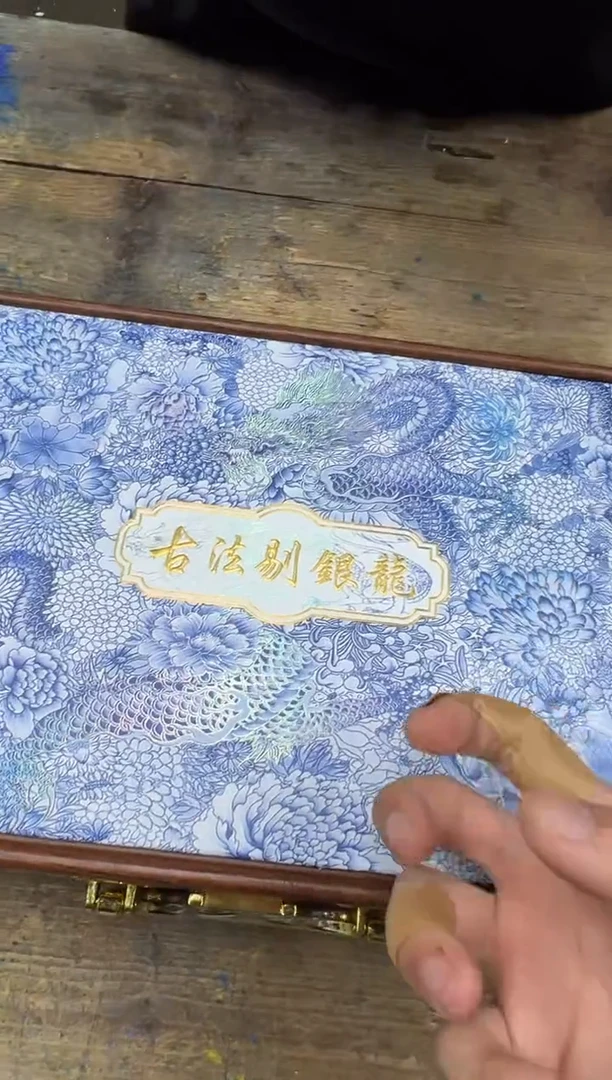 古法剔銀龍